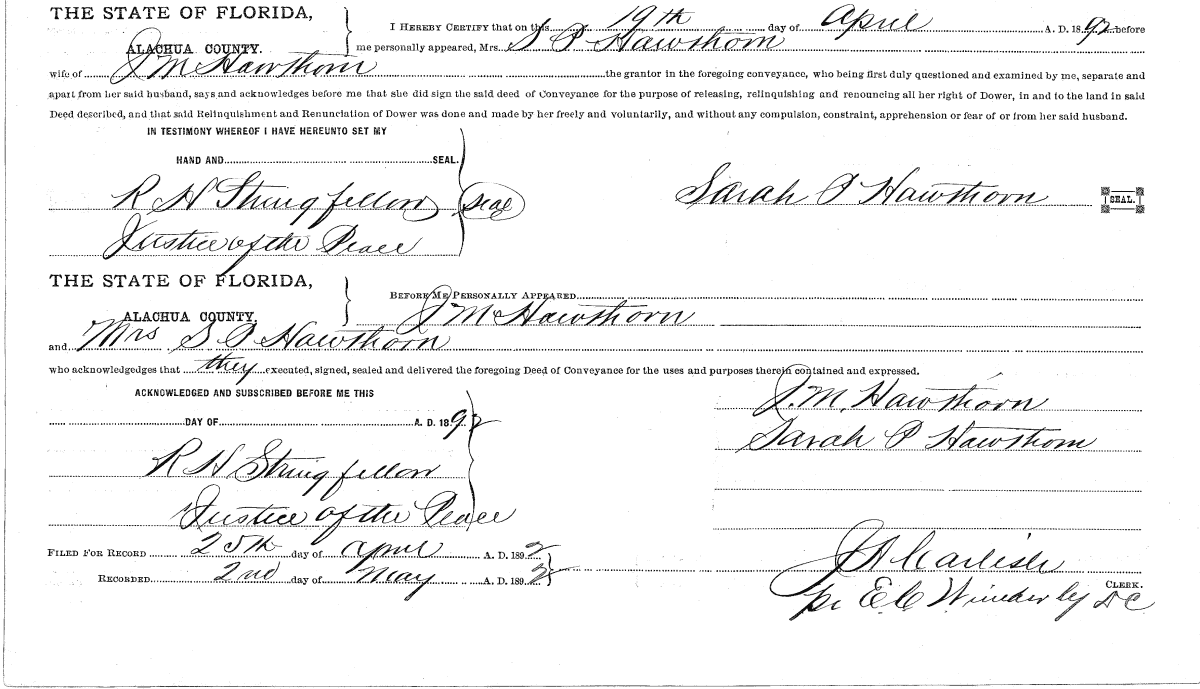 THE STATE OF FLORIDA,
ALACHUA COUNTY.
I HEREBY CERTIFY that on this 19th day of April A. D. 1892 before
me personally appeared, Mrs. S P Hawthorn
wife of J M Hawthorn the grantor in the foregoing conveyance, who being first duly questioned and examined by me, separate and
apart from her said husband, says and acknowledges before me that she did sign the said deed of Conveyance for the purpose of releasing, relinquishing and renouncing all her right of Dower, in and to the land in said
Deed described, and that said Relinquishment and Renunciation of Dower was done and made by her freely and voluntarily, and without any compulsion, constraint, apprehension or fear of or from her said husband.
IN TESTIMONY WHEREOF I HAVE HEREUNTO SET MY
HAND AND SEAL.
R H Stringfellow (Seal)
Sarah P Hawthorn SEAL.
Justice of the Peace
THE STATE OF FLORIDA,
ALACHUA COUNTY.
BEFORE ME PERSONALLY APPEARED
J M Hawthorn
and Mrs S P Hawthorn
who acknowledgedges that they executed, signed, sealed and delivered the foregoing Deed of Conveyance for the uses and purposes therein contained and expressed.
ACKNOWLEDGED AND SUBSCRIBED BEFORE ME THIS
J. M. Hawthorn
DAY OF A. D. 1892
Sarah P Hawthorn
R H Stringfellow
Justice of the Peace
FILED FOR RECORD 25th day of April A. D. 1892
RECORDED 2nd day of May A. D. 1892
J A Carlisle
CLERK.
pr E C Wimberly DC